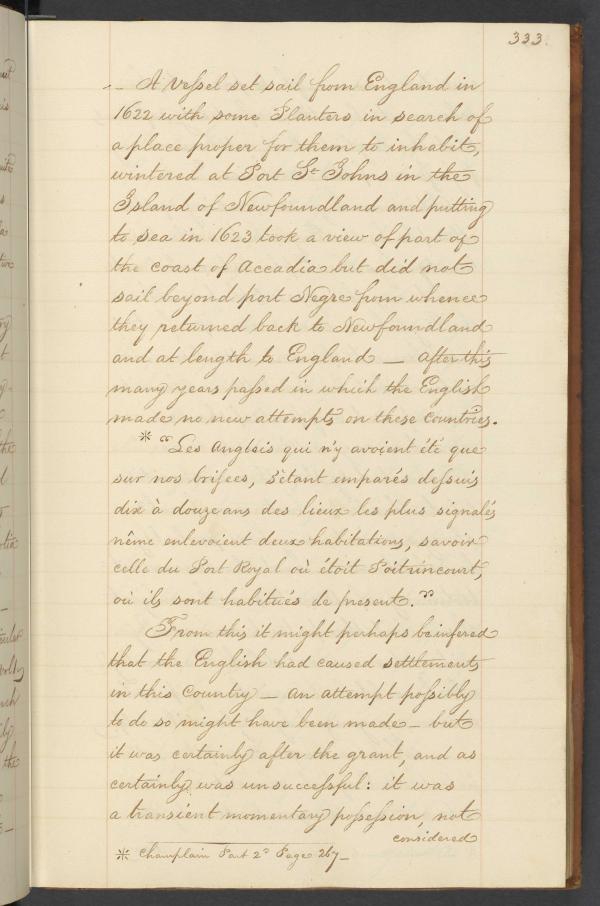 333.
A vessel set sail from England in
1622 with some Planters in search of
a place proper for them to inhabit,
wintered at Port St Johns in the
Island of Newfoundland and putting
to sea in 1623 took a view of part of
the coast of Accadia but did not
sail beyond port Negre from whence
they returned back to Newfoundland
and at length to England — after this
many years passed in which the English
made no new attempts on these Countries.
* "Les Anglois qui n'y avoient été que
sur nos brisees, s'étant emparés dessuis
dix à douze ans des lieux les plus signalés
nême enlevoient deux habitations, savoir
celle du Port Royal où étoit Poitrincourt,
où ils sont habitués de present."
From this it might perhaps be infered
that the English had caused settlements
in this Country — an attempt possibly
to do so might have been made — but
it was certainly after the grant, and as
certainly was unsuccessful: it was
a transient momentary possession, not
considered
* Champlain Part 2d Page 267—